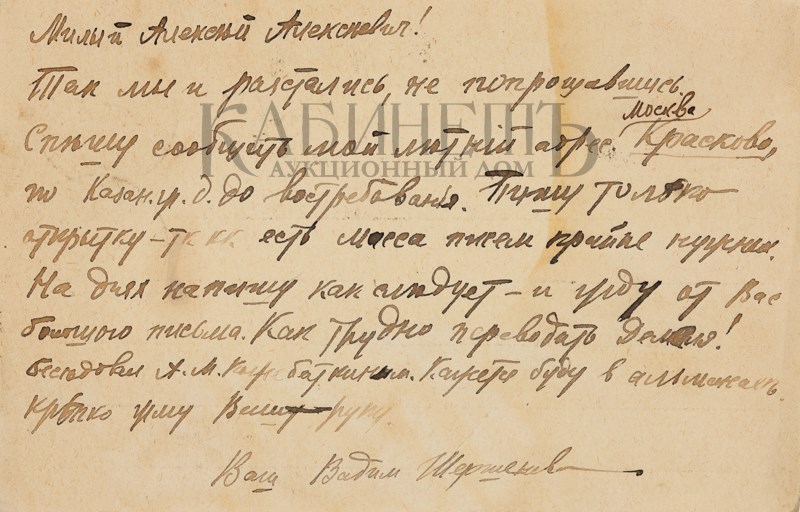 Милый Алексѣй Алексѣевич!
Так мы и разстались, не попрощавшись.
Москва
Спѣшу сообщить мой лѣтній адрес. Красково,
по Казан. ж. д. до востребованія. Пишу только
открытку – т.к. есть масса писем крайне нужных.
На днях напишу как слѣдует – и жду от Вас
большого письма. Как трудно переводить
бесѣдовал А. М. Кажется буду в альманахѣ.
Крѣпко жму Вашу руку.
Ваш Вадим Шершеневич
КАБИНЕТЪ
АУКЦИОННЫЙ ДОМ